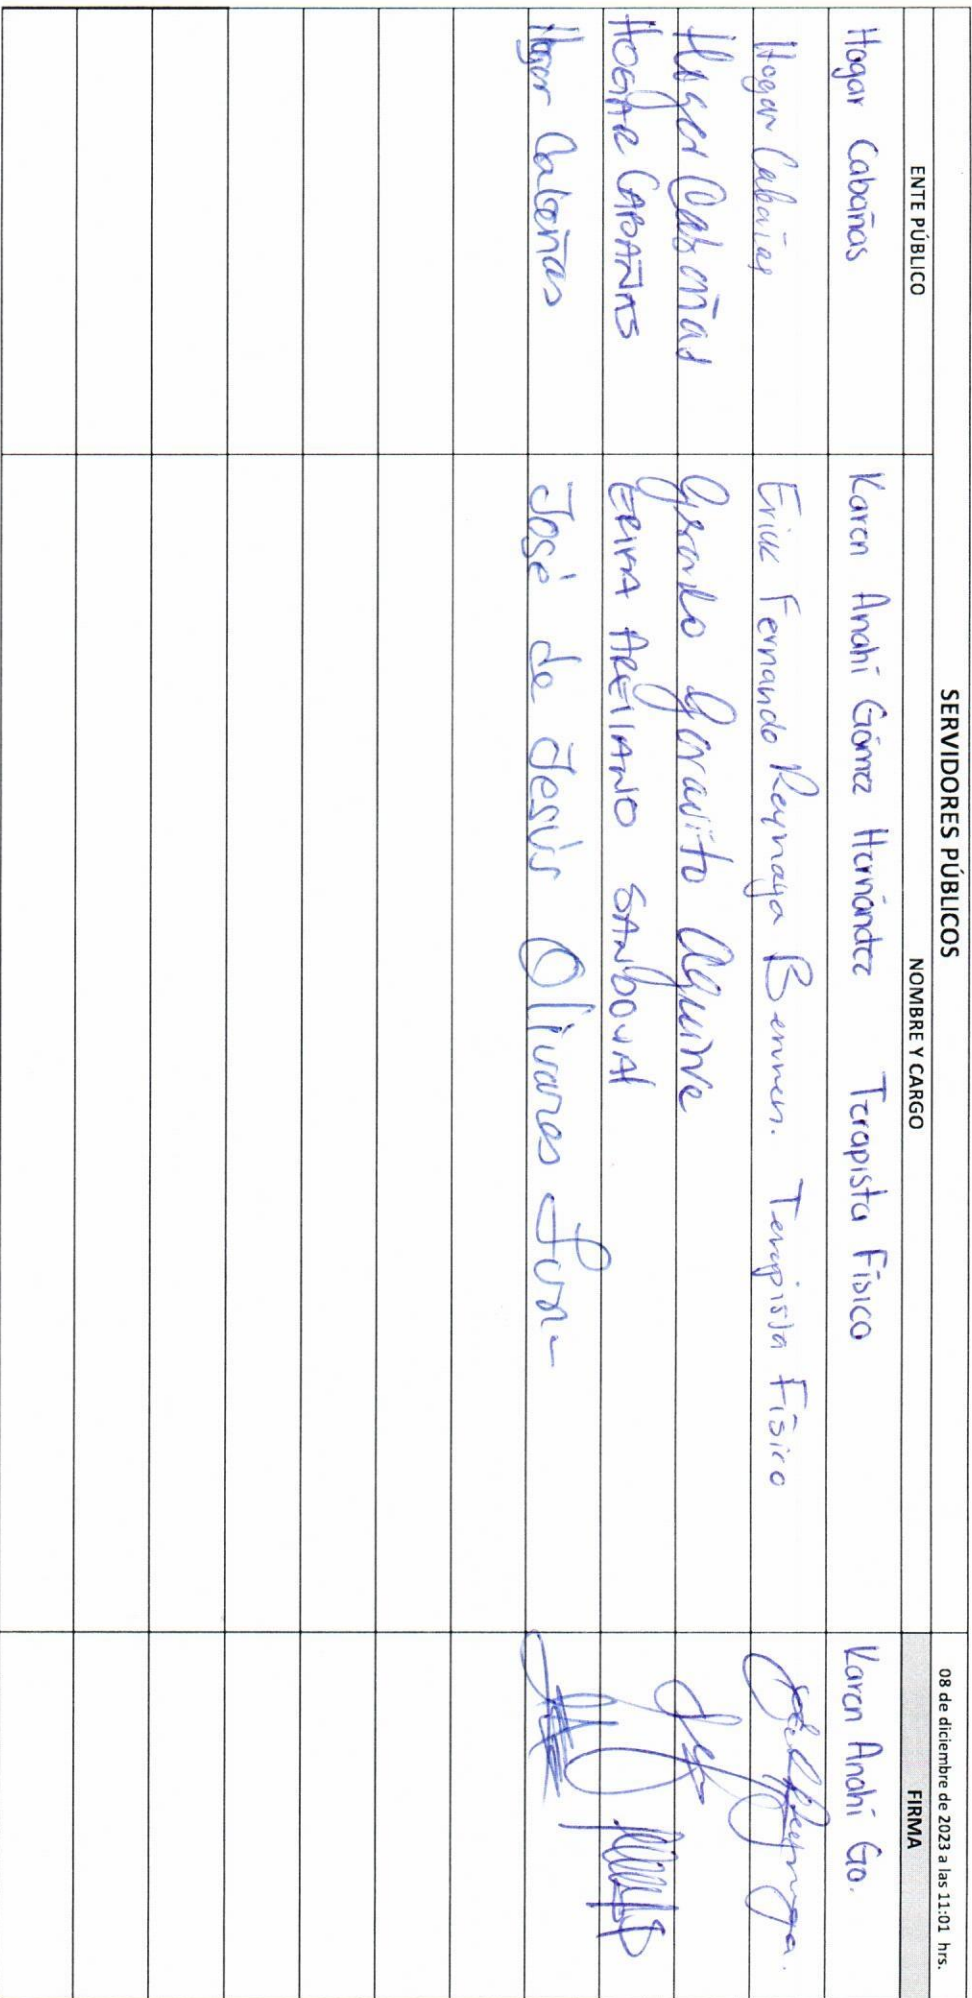 SERVIDORES PÚBLICOS
08 de diciembre de 2023 a las 11:01 hrs.
ENTE PÚBLICO NOMBRE Y CARGO FIRMA
Hogar Cabañas Karen Anahí Gómez Hernández Terapista Físico Karen Anahí Go.
Hogar Cabañas Erick Fernando Reynaga Terapista Físico
Hogar Cabañas Gerardo Garavito Aguirre
HOGAR CABAÑAS ERIKA ARELLANO SANDOVAL
Hogar Cabañas José de Jesús Olivares